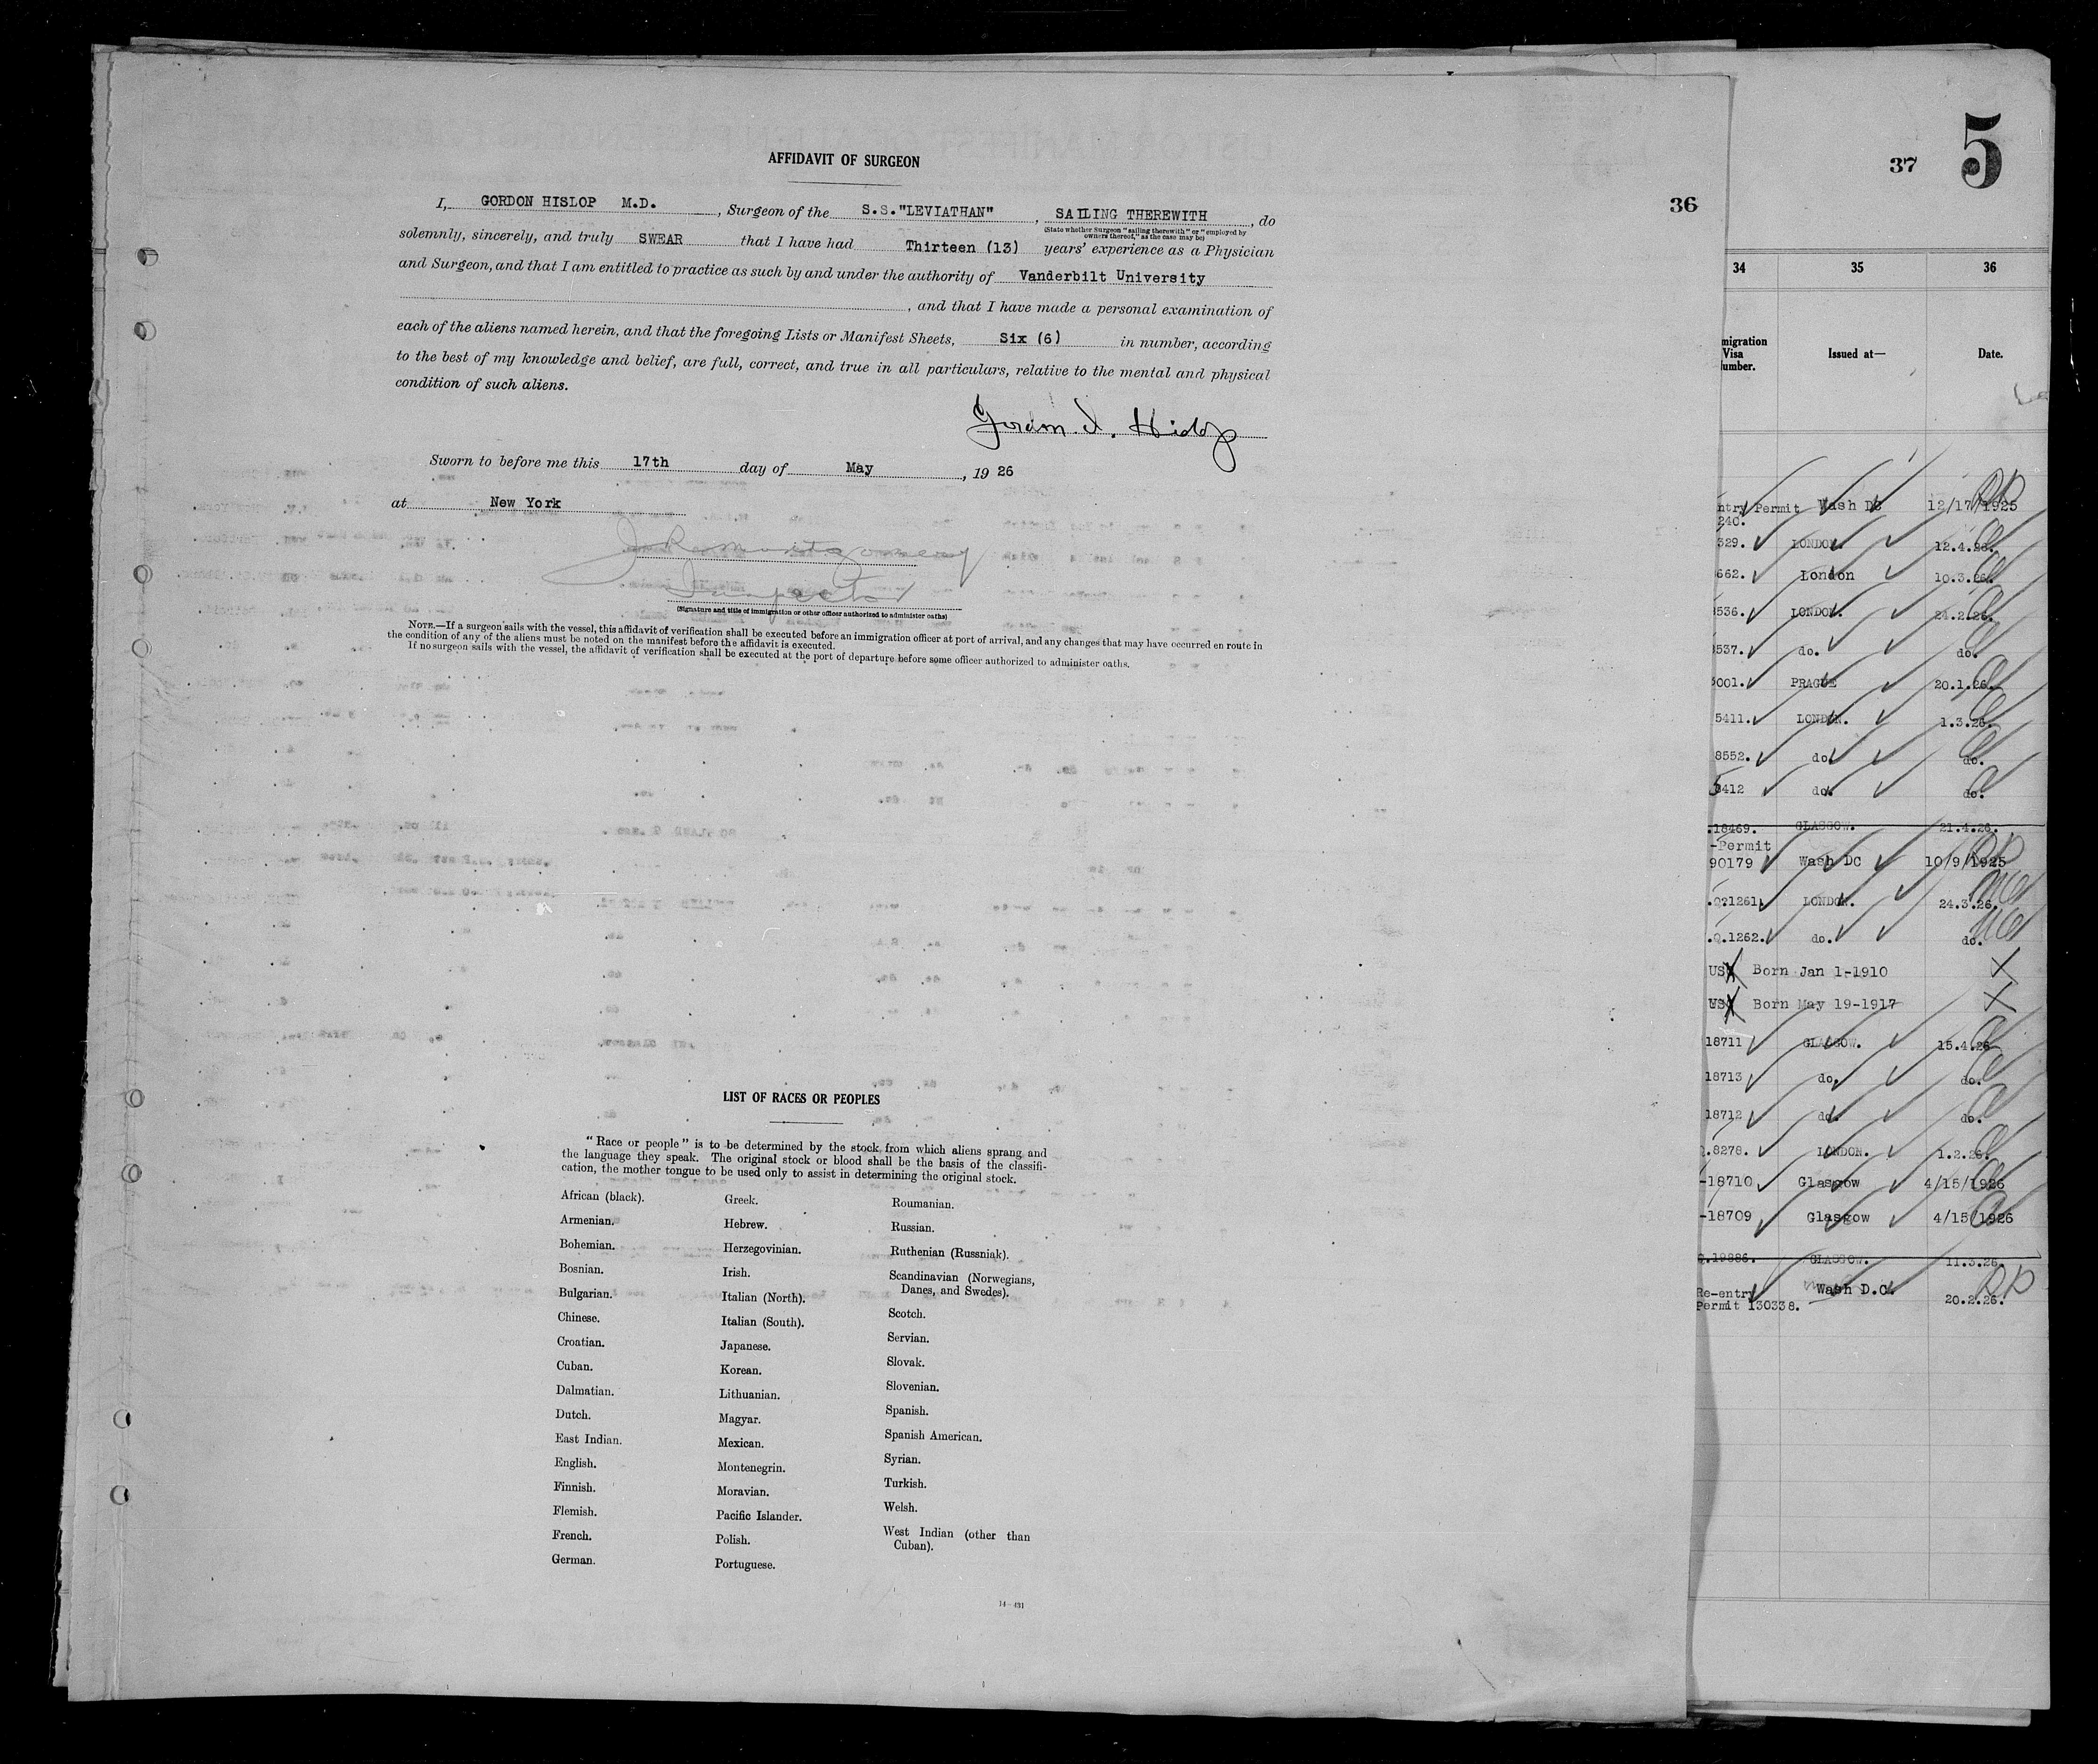 AFFIDAVIT OF SURGEON
36
I, GORDON HISLOP M.D. , Surgeon of the S.S."LEVIATHAN" , SAILING THEREWITH , do
(State whether Surgeon "sailing therewith" or "employed by
owners thereof," as the case may be)
solemnly, sincerely, and truly SWEAR that I have had Thirteen (13) years' experience as a Physician
and Surgeon, and that I am entitled to practice as such by and under the authority of Vanderbilt University
, and that I have made a personal examination of
each of the aliens named herein, and that the foregoing Lists or Manifest Sheets, Six (6) in number, according
to the best of my knowledge and belief, are full, correct, and true in all particulars, relative to the mental and physical
condition of such aliens.
Gordon Hislop
Sworn to before me this 17th day of May , 19 26
at New York
Inspector
(Signature and title of immigration or other officer authorized to administer oaths)
NOTE.—If a surgeon sails with the vessel, this affidavit of verification shall be executed before an immigration officer at port of arrival, and any changes that may have occurred en route in
the condition of any of the aliens must be noted on the manifest before the affidavit is executed.
If no surgeon sails with the vessel, the affidavit of verification shall be executed at the port of departure before some officer authorized to administer oaths.
LIST OF RACES OR PEOPLES
"Race or people" is to be determined by the stock from which aliens sprang and
the language they speak. The original stock or blood shall be the basis of the classifi-
cation, the mother tongue to be used only to assist in determining the original stock.
African (black).
Armenian.
Bohemian.
Bosnian.
Bulgarian.
Chinese.
Croatian.
Cuban.
Dalmatian.
Dutch.
East Indian.
English.
Finnish.
Flemish.
French.
German.
Greek.
Hebrew.
Herzegovinian.
Irish.
Italian (North).
Italian (South).
Japanese.
Korean.
Lithuanian.
Magyar.
Mexican.
Montenegrin.
Moravian.
Pacific Islander.
Polish.
Portuguese.
Roumanian.
Russian.
Ruthenian (Russniak).
Scandinavian (Norwegians,
Danes, and Swedes).
Scotch.
Servian.
Slovak.
Slovenian.
Spanish.
Spanish American.
Syrian.
Turkish.
Welsh.
West Indian (other than
Cuban).
14—431
37 5
34 35 36
migration
Visa
umber.
Issued at—
Date.
ntry Permit Wash DC 12/17/1925
240.
329. LONDON. 12.4.26.
662. London 10.3.26.
536. LONDON. 24.2.26.
537. do. do.
001. PRAGUE 20.1.26.
5411. LONDON. 1.3.26.
8552. do. do.
5412 do. do.
.18469. GLASGOW. 21.4.26.
-Permit
90179 Wash DC 10/9/1925
.Q.1261 LONDON. 24.3.26.
.Q.1262. do. do.
US Born Jan 1-1910 X
US Born May 19-1917 X
18711 GLASGOW. 15.4.26
18713 do. do.
18712 do. do.
.8278. LONDON. 1.2.26.
-18710 Glasgow 4/15/1926
-18709 Glasgow 4/15/1926
.19886. GLASGOW. 11.3.26.
Re-entry Wash D.C. 20.2.26.
Permit 130338.